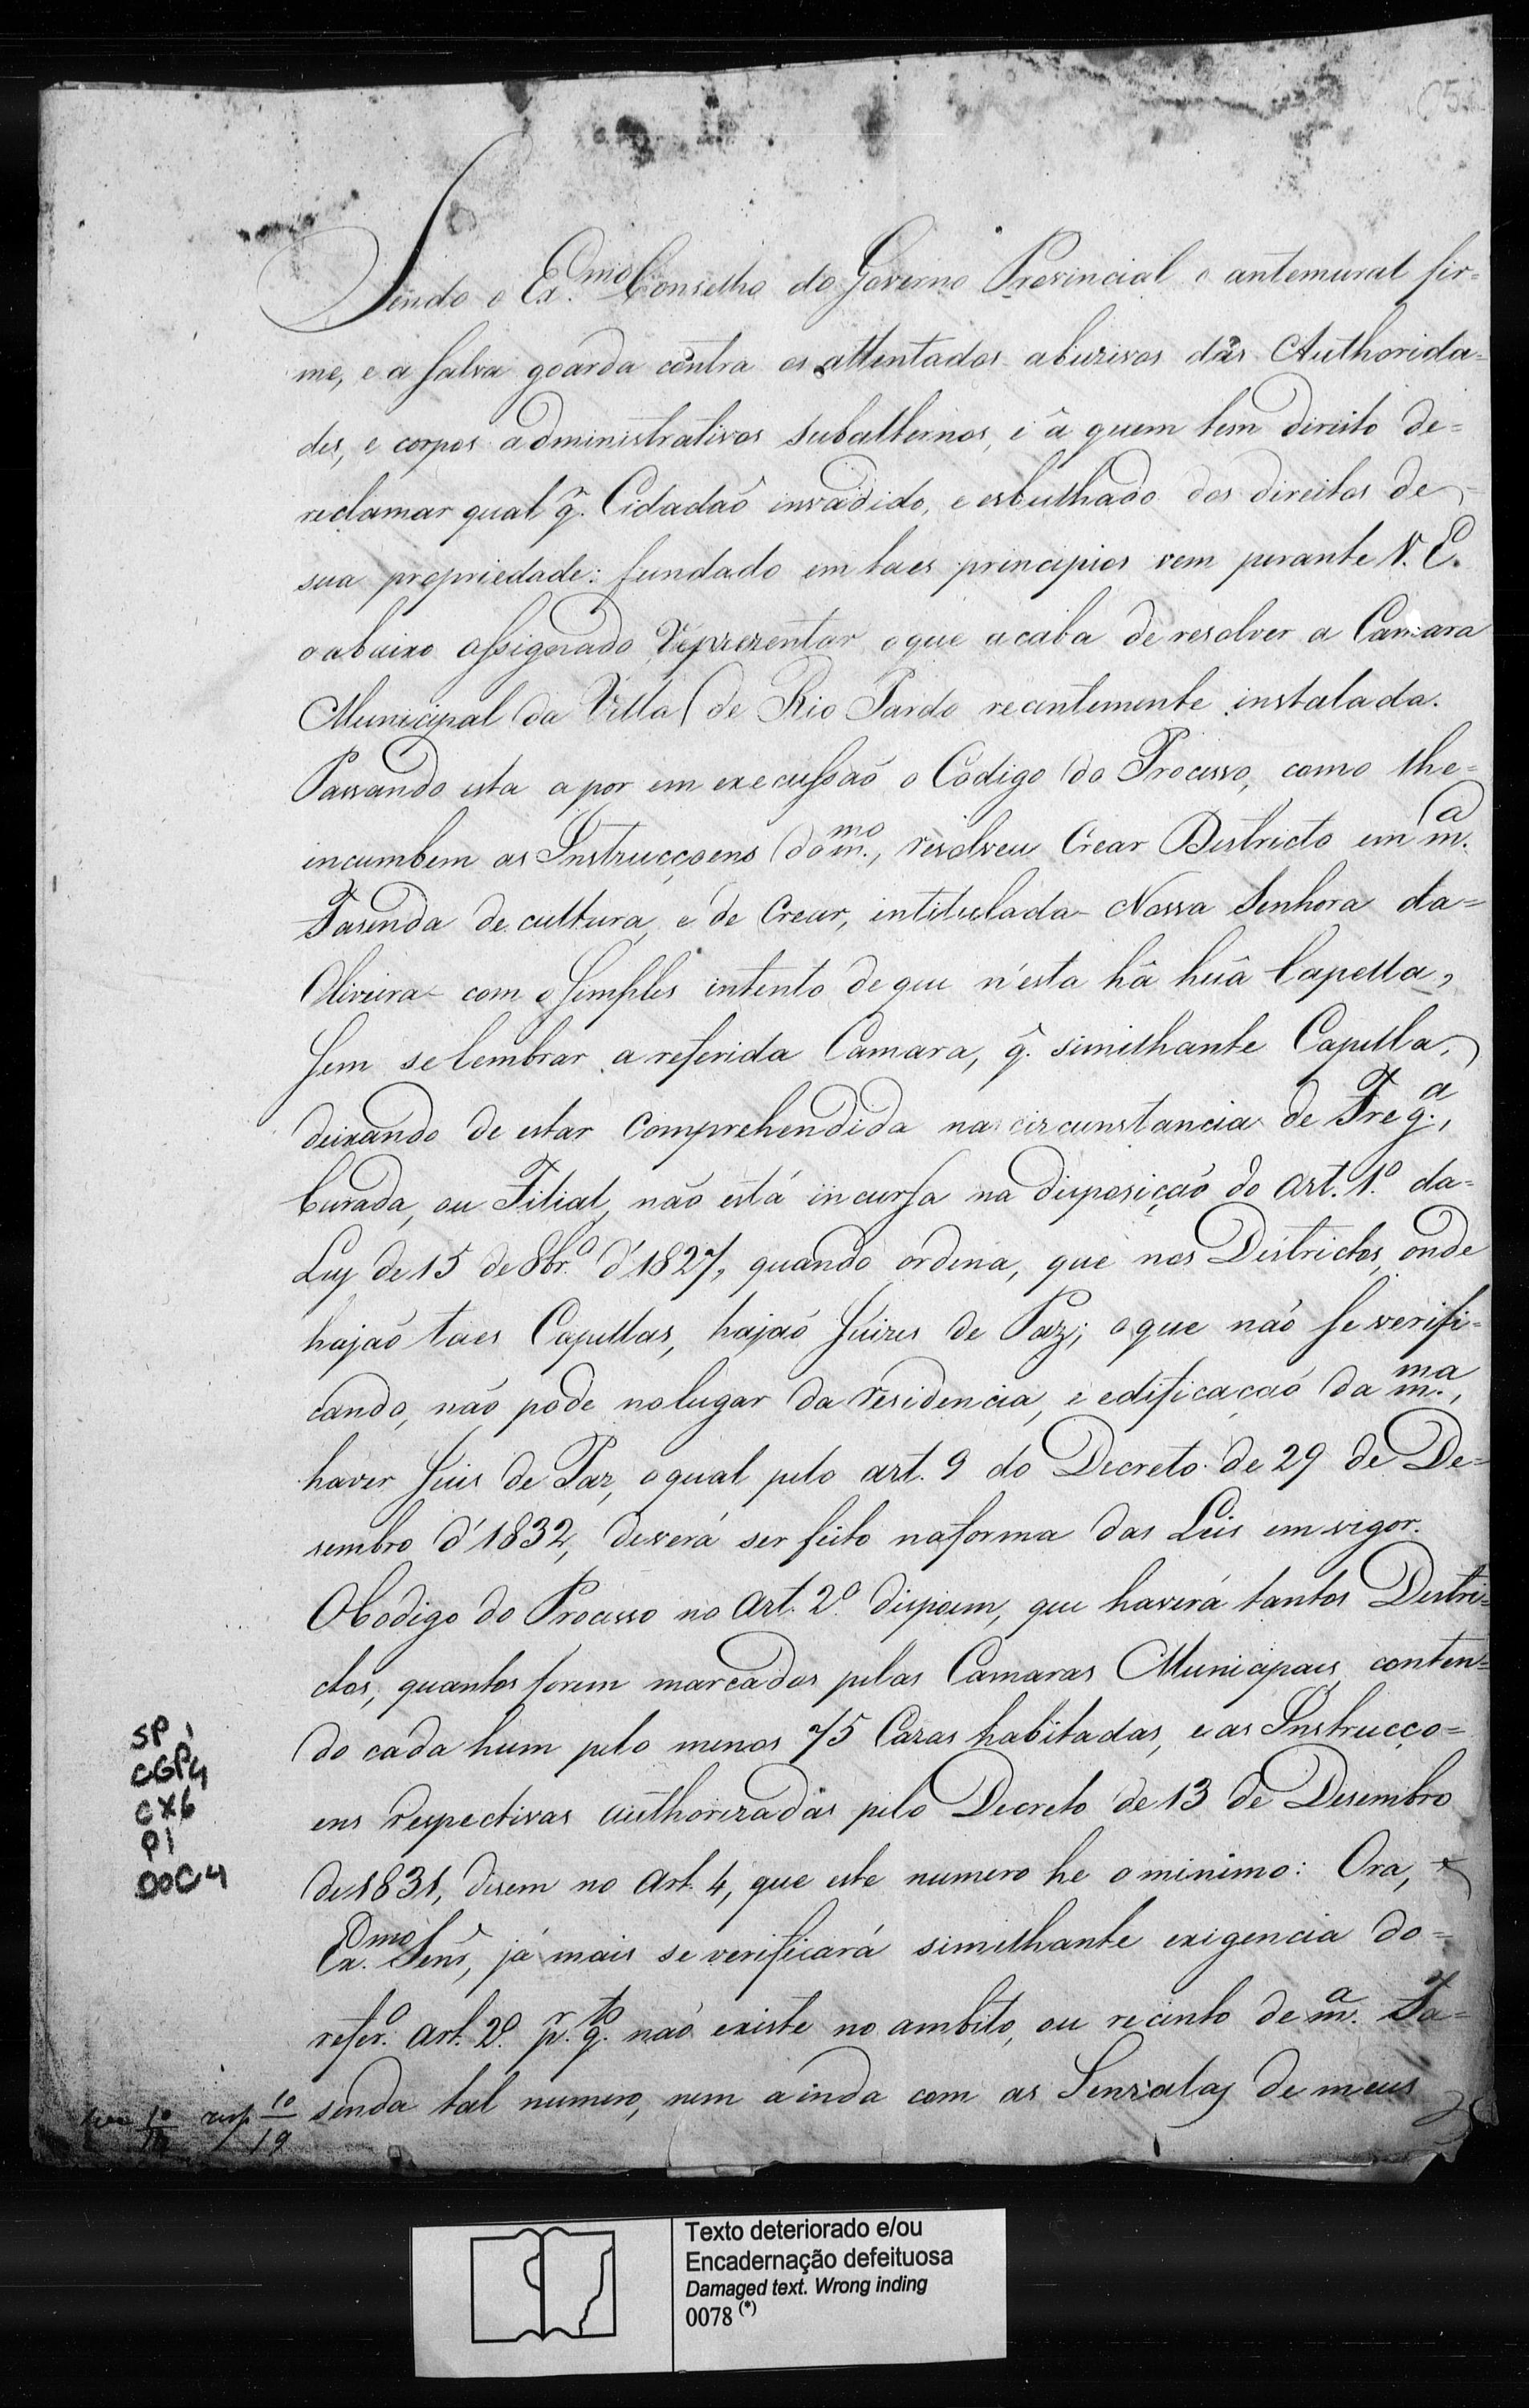 Sendo o Ex.mo Conselho do Governo Provincial o antemural fir-
me, e a salva goarda contra os attentados abuzivos das Authorida-
des, e corpos administrativos subalternos, e â quem tem direito de-
reclamar qual q̃. Cidadaõ invadido, e esbulhado dos direitos de
sua propriedade: fundado em taes principios vem perante V. E.
o abaixo assignado Reprezentar o que acaba de resolver a Camara
Municipal da Villa de Rio Pardo recentemente instalada.
Passando esta a por em execussaõ o Codigo do Processo, como lhe-
incumbem as Instrucçoens do m.mo, resolveu Crear Districto em m.a
Fasenda de cultura, e de Crear, intitulada - Nossa Senhora da-
Oliveira - com o simples intento de que n'esta hâ huâ Capella,
sem se lembrar a referida Camara, q̃. similhante Capella,
deixando de estar comprehendida na circunstancia de Freg.a,
Curada, ou Filial, não está incursa na disposiçaõ do art. 1.o da-
Ley de 15 de 8br.o d'1827, quando ordena, que nos Districtos, onde
hajaõ taes Capellas, hajaõ Juizes de Paz; o que não se verifi-
cando, não pode no lugar da residencia, e edificaçaõ da m.ma,
haver Juis de Paz, o qual pelo art. 9 do Decreto de 29 de De-
sembro d'1832, deverá ser feito na forma das Leis em vigor.
O Codigo do Processo no art. 2.o dispoem, que haverá tantos Distri-
ctos, quantos forem marcados pelas Camaras Municipaes, conten-
do cada hum pelo menos 75 Cazas habitadas, e as Instrucço-
ens respectivas authorizadas pelo Decreto de 13 de Desembro
de 1831, disem no art. 4, que este numero he o minimo: Ora,
Ex.mo Senr̃, já mais se verificará similhante exigencia do-
refer.o art. 2.o p.r q.to não existe no ambito, ou recinto de m.a Fa-
senda tal numero, nem ainda com as Senzalas de meus
SP 1
CGP4
CX6
P1
DOC4
10
19
Texto deteriorado e/ou
Encadernação defeituosa
Damaged text. Wrong inding
0078 (*)